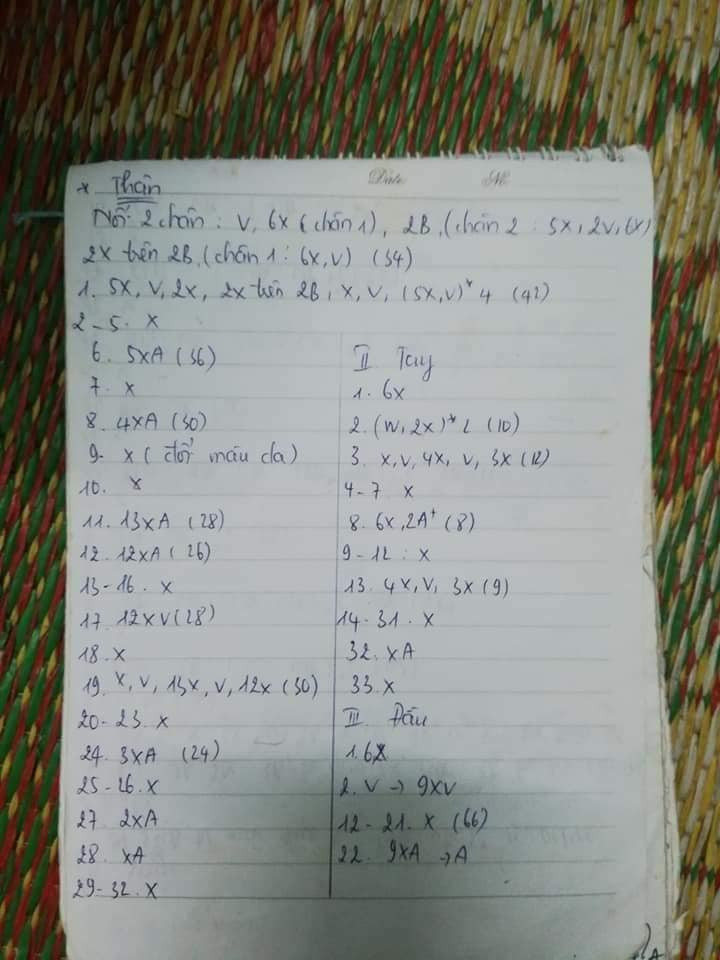 * Thân
Date No.
Nối 2 chân : V, 6X (chân 1), 2B, (chân 2 : 5X, 2V, 6X)
2X trên 2B, (chân 1 : 6X, V) (34)
1. 5X, V, 2X, 2X trên 2B, X, V, (5X, V)* 4 (42)
2-5. X
6. 5XA (36)
7. X
8. 4XA (30)
9. X (đổi màu da)
10. X
11. 13XA (28)
12. 12XA (26)
13-16. X
17. 12XV (28)
18. X
19. X, V, 13X, V, 12X (30)
20-23. X
24. 3XA (24)
25-26. X
27. 2XA
28. XA
29-32. X
II Tay
1. 6X
2. (W, 2X)* 2 (10)
3. X, V, 4X, V, 3X (12)
4-7. X
8. 6X, 2A+ (8)
9-12 : X
13. 4X, V, 3X (9)
14-31. X
32. XA
33. X
III. Đầu
1. 6X
2. V → 9XV
12-21. X (66)
22. 9XA → A